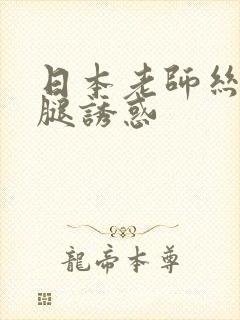 日本老師絲
腿誘惑
龍帝本尊